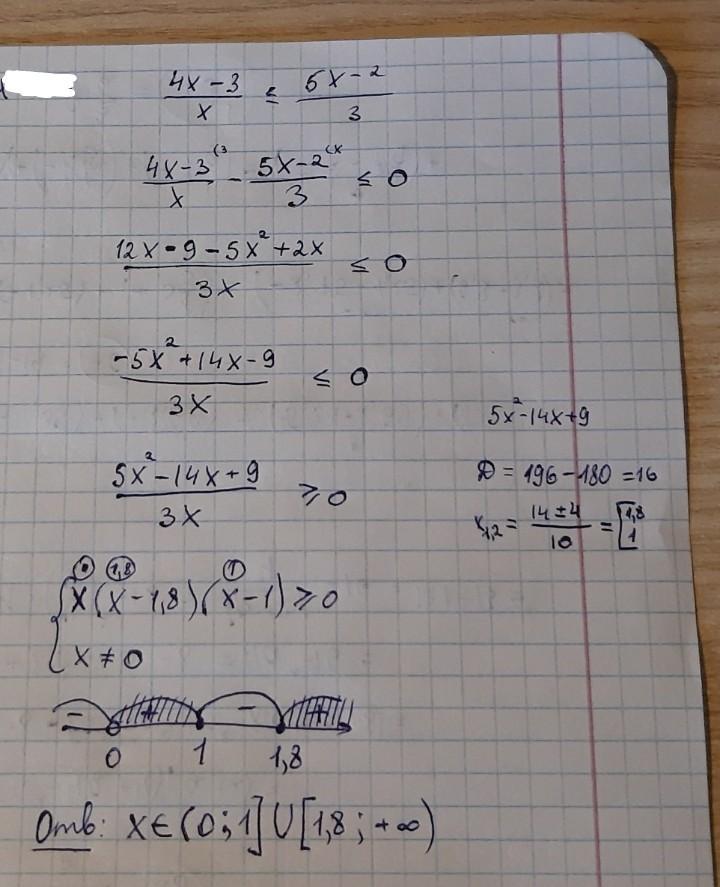 (4x-3)/x ≤ (5x-2)/3
(4x-3)/x (3 - (5x-2)/3 (x ≤ 0
(12x-9-5x²+2x)/3x ≤ 0
(-5x²+14x-9)/3x ≤ 0
5x²-14x+9
(5x²-14x+9)/3x ≥ 0
D = 196-180 = 16
x₁,₂ = (14±4)/10 = [1,8
1
0 1,8 1
{ x(x-1,8)(x-1) ≥ 0
x ≠ 0
- + - +
0 1 1,8
Отв: x∈(0;1]∪[1,8;+∞)